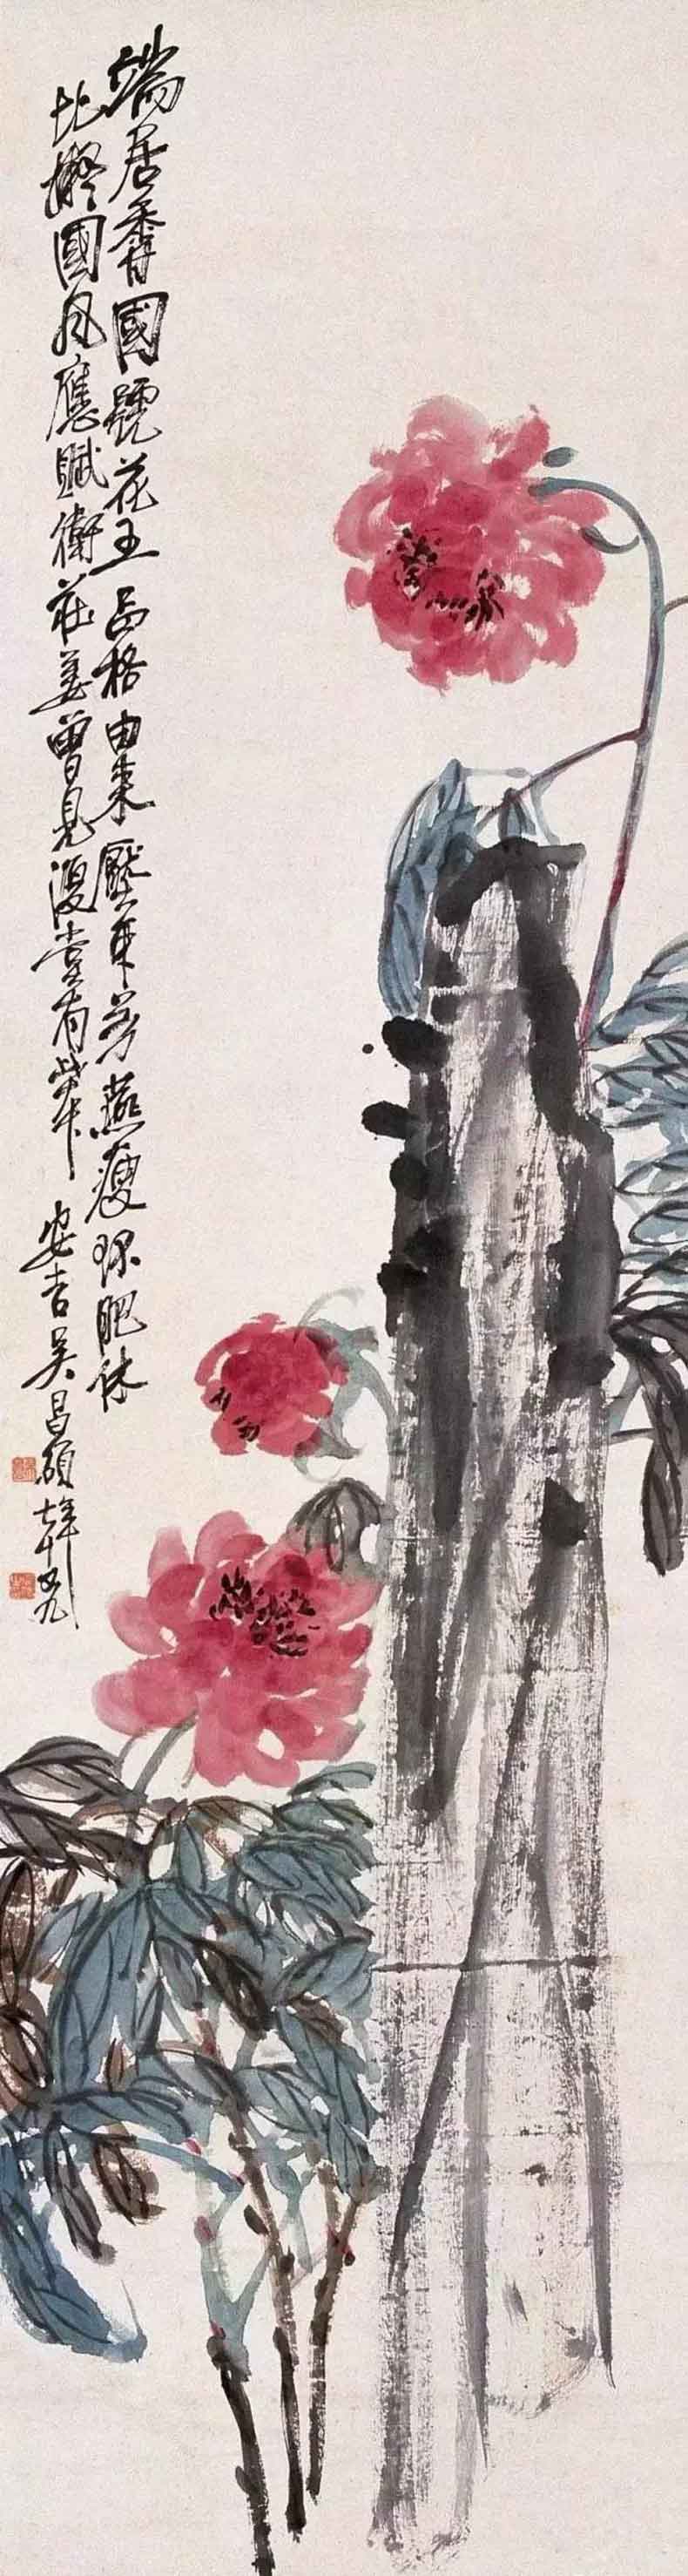 端居香國號花王品格由來壓眾芳燕瘦環肥休
比擬國風應賦衛莊姜曾見復堂有此本安吉吳昌碩年七十又九